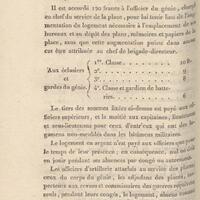 Il est accordé 120 francs à l'officier du génie, chargé
en chef du service de la place, pour lui tenir lieu de l'aug-
mentation de logement nécessaire à l'emplacement de ses
bureaux et au dépôt des plans, mémoires et papiers de la
place, sans que cette augmentation puisse dans aucun
être attribuée au chef de brigade-directeur.
Aux éclusiers et gardes du génie.
1re. Classe
2e.
3e.
4e. Classe et gardien de batte-
ries
Le tiers des sommes fixées ci-dessus est payé aux of-
ficiers supérieurs, et la moitié aux capitaines, lieutenans
et sous-lieutenans pour ceux d'entr'eux qui ont des lo-
gemens non-meublés dans les bâtimens militaires.
Le logement en argent n'est payé aux officiers que pour
le temps de leur présence; en conséquence, aucun
en jouit pendant ses absences par congé ou autrement.
Les officiers d'artillerie attachés au service des places,
ceux du corps du génie, les adjudans des places,
pecteurs aux revues et commissaires des guerres
vent, pendant leurs congés, le logement,